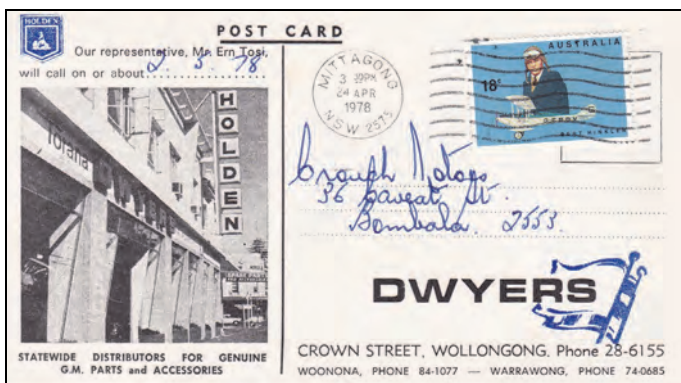 POST CARD
HOLDEN
Our representative, Mr. Ern Tosi,
will call on or about 2. 5. 78
Torana
DWYER
HOLDEN
STATEWIDE DISTRIBUTORS FOR GENUINE
G.M. PARTS and ACCESSORIES
MITTAGONG
3 PM
24 APR
1978
NSW 2575
AUSTRALIA
18c
BERT HINKLER
Crouch Motors
36 Caveat St.
Bombala. 2553.
DWYERS
CROWN STREET, WOLLONGONG. Phone 28-6155
WOONONA, PHONE 84-1077 — WARRAWONG, PHONE 74-0685